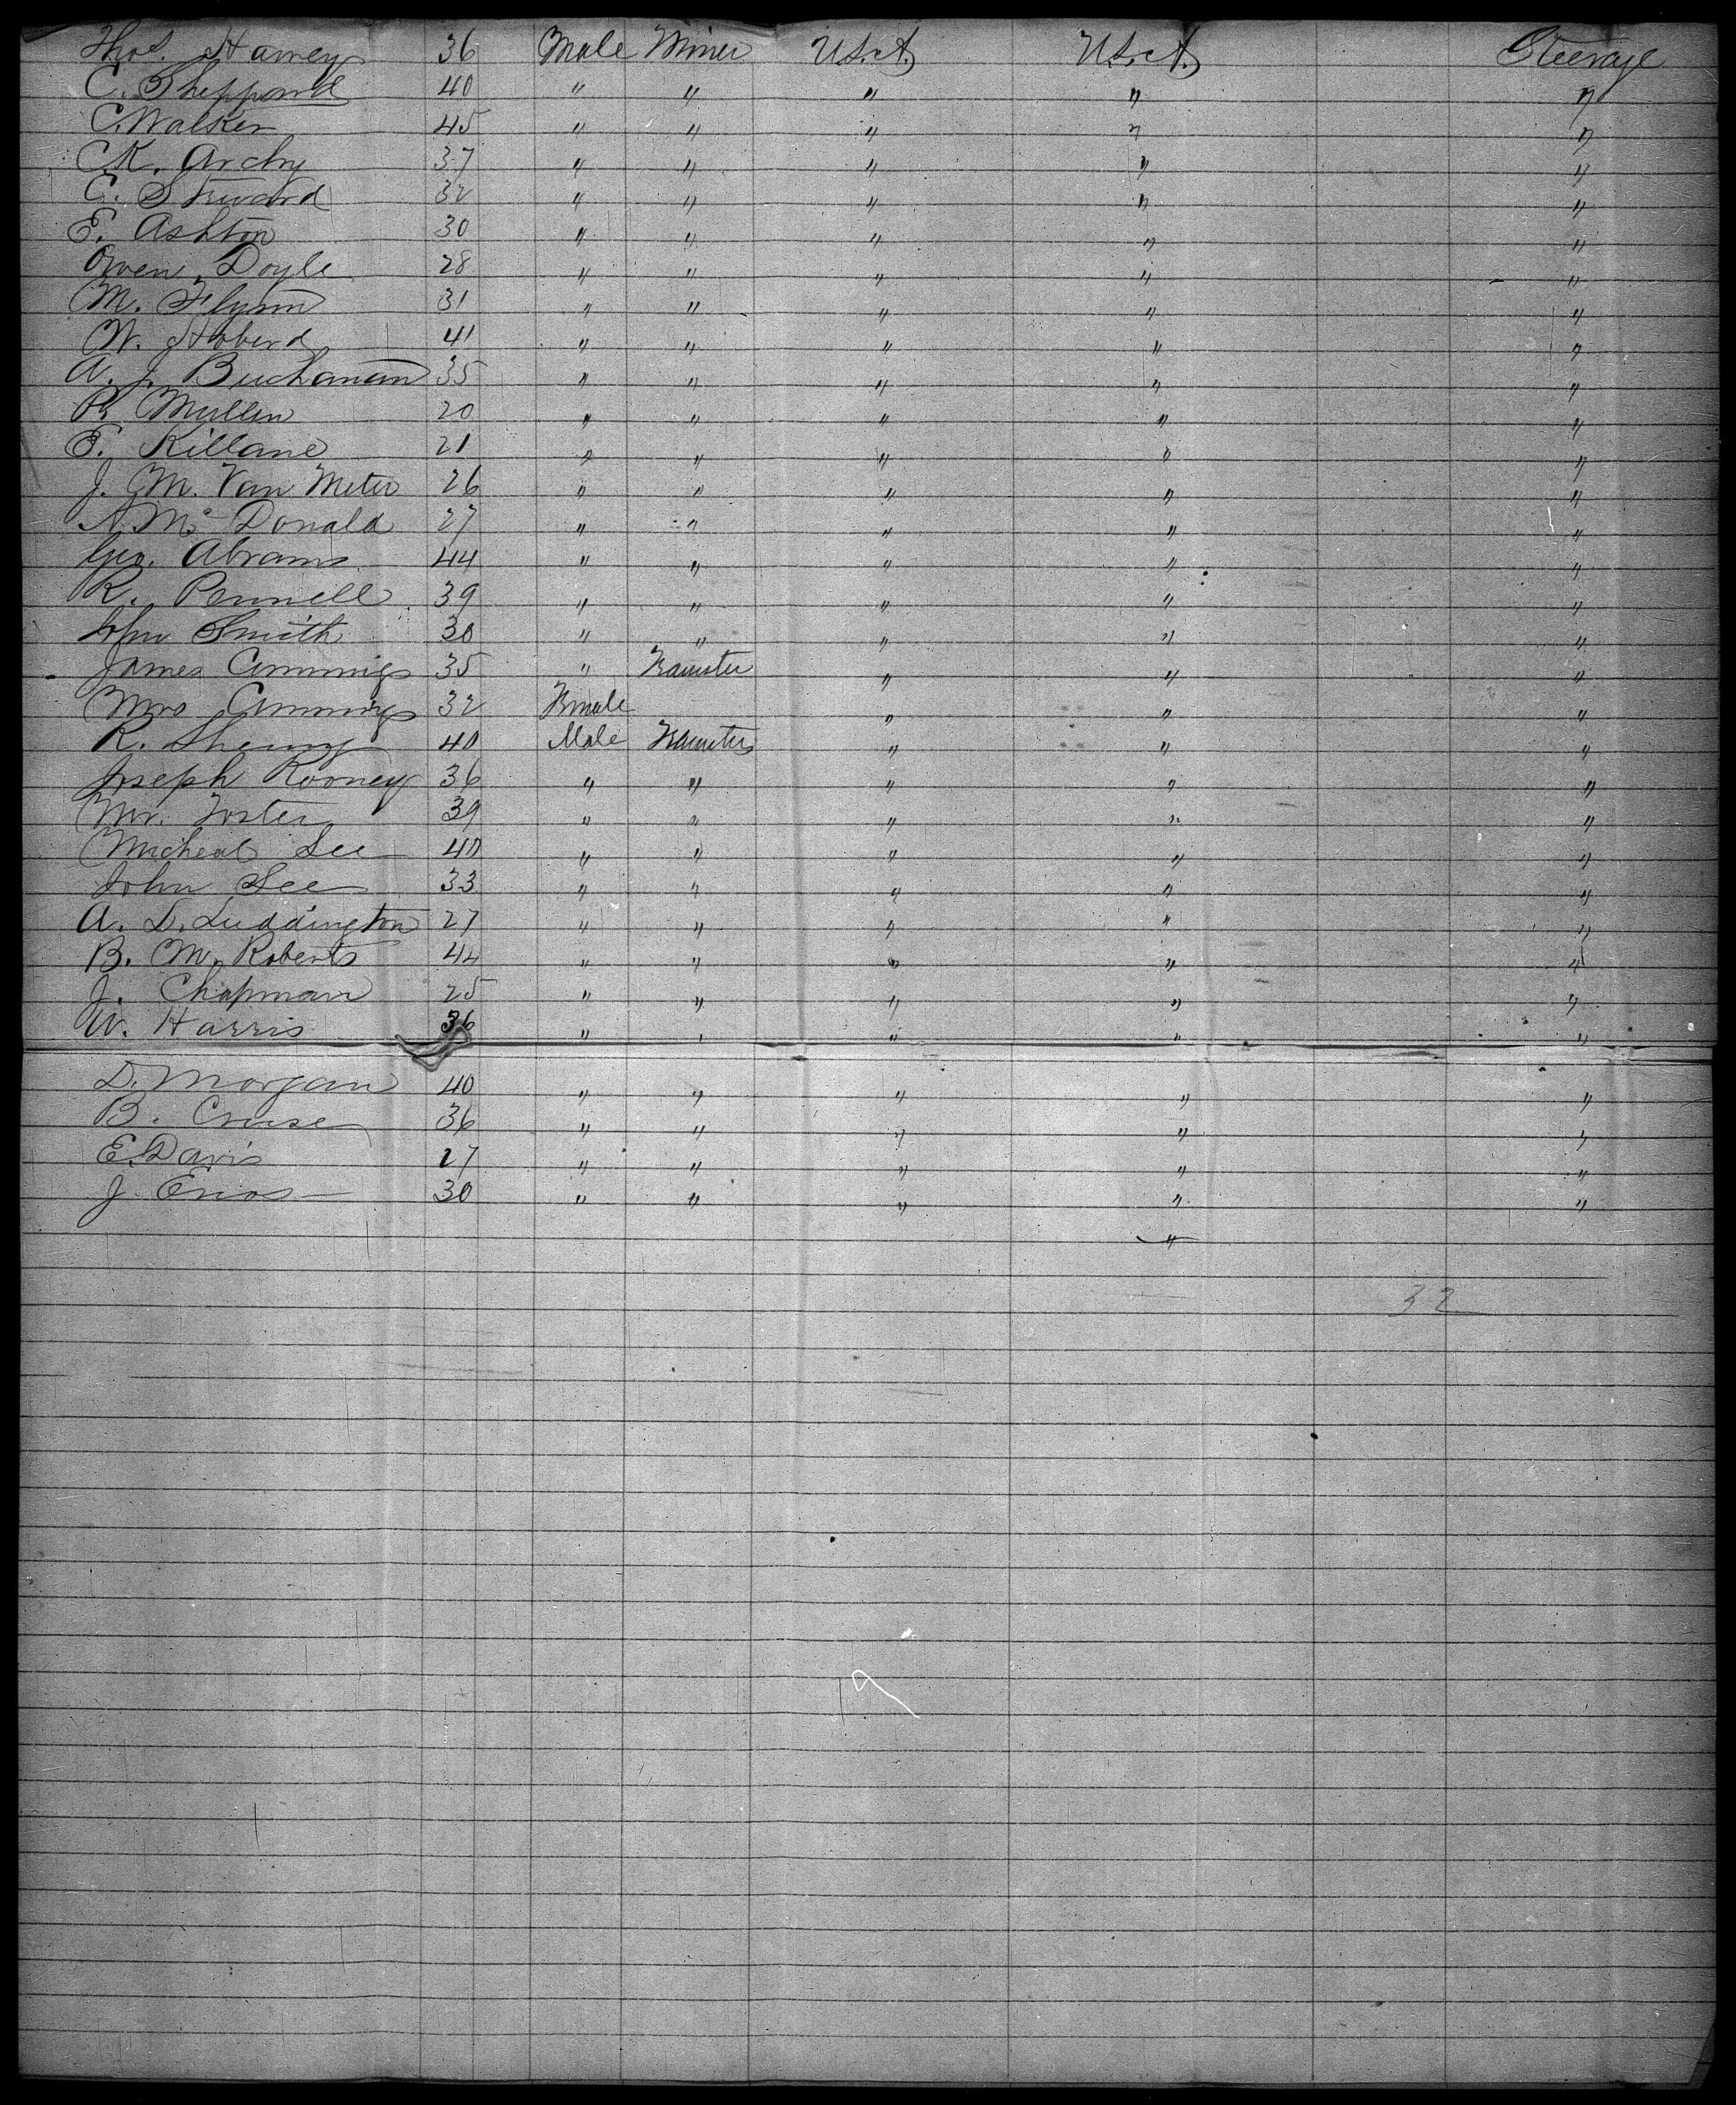 Thos. Harney 36 Male Miner U.S.A. U.S.A. Steerage
C. Sheppard 40 " " " " "
C. Walker 45 " " " " "
C.K. Archy 37 " " " " "
C. Steward 32 " " " " "
E. Ashton 30 " " " " "
Owen Doyle 28 " " " " "
M. Flynn 31 " " " " "
W. Hoberd 41 " " " " "
A. J. Buchanan 35 " " " " "
P. Mullen 20 " " " " "
E. Killane 21 " " " " "
J. M. Van Meter 26 " " " " "
A. Mc Donald 27 " " " " "
Geo. Abrams 44 " " " " "
R. Pennell 39 " " " " "
John Smith 30 " " " " "
James Cummings 35 " Teamster " " "
Mrs Cummings 32 Female " " "
R. 40 Male Teamster " " "
Joseph Rooney 36 " " " " "
Mr. Foster 39 " " " " "
Micheal Lee 40 " " " " "
John Lee 33 " " " " "
A. D. Luddington 27 " " " " "
B. M. Roberts 44 " " " " "
J. Chapman 25 " " " " "
W. Harris 36 " " " " "
D. Morgan 40 " " " " "
B. Cruse 36 " " " " "
E. Davis 27 " " " " "
J. Enos 30 " " " " "
"
32